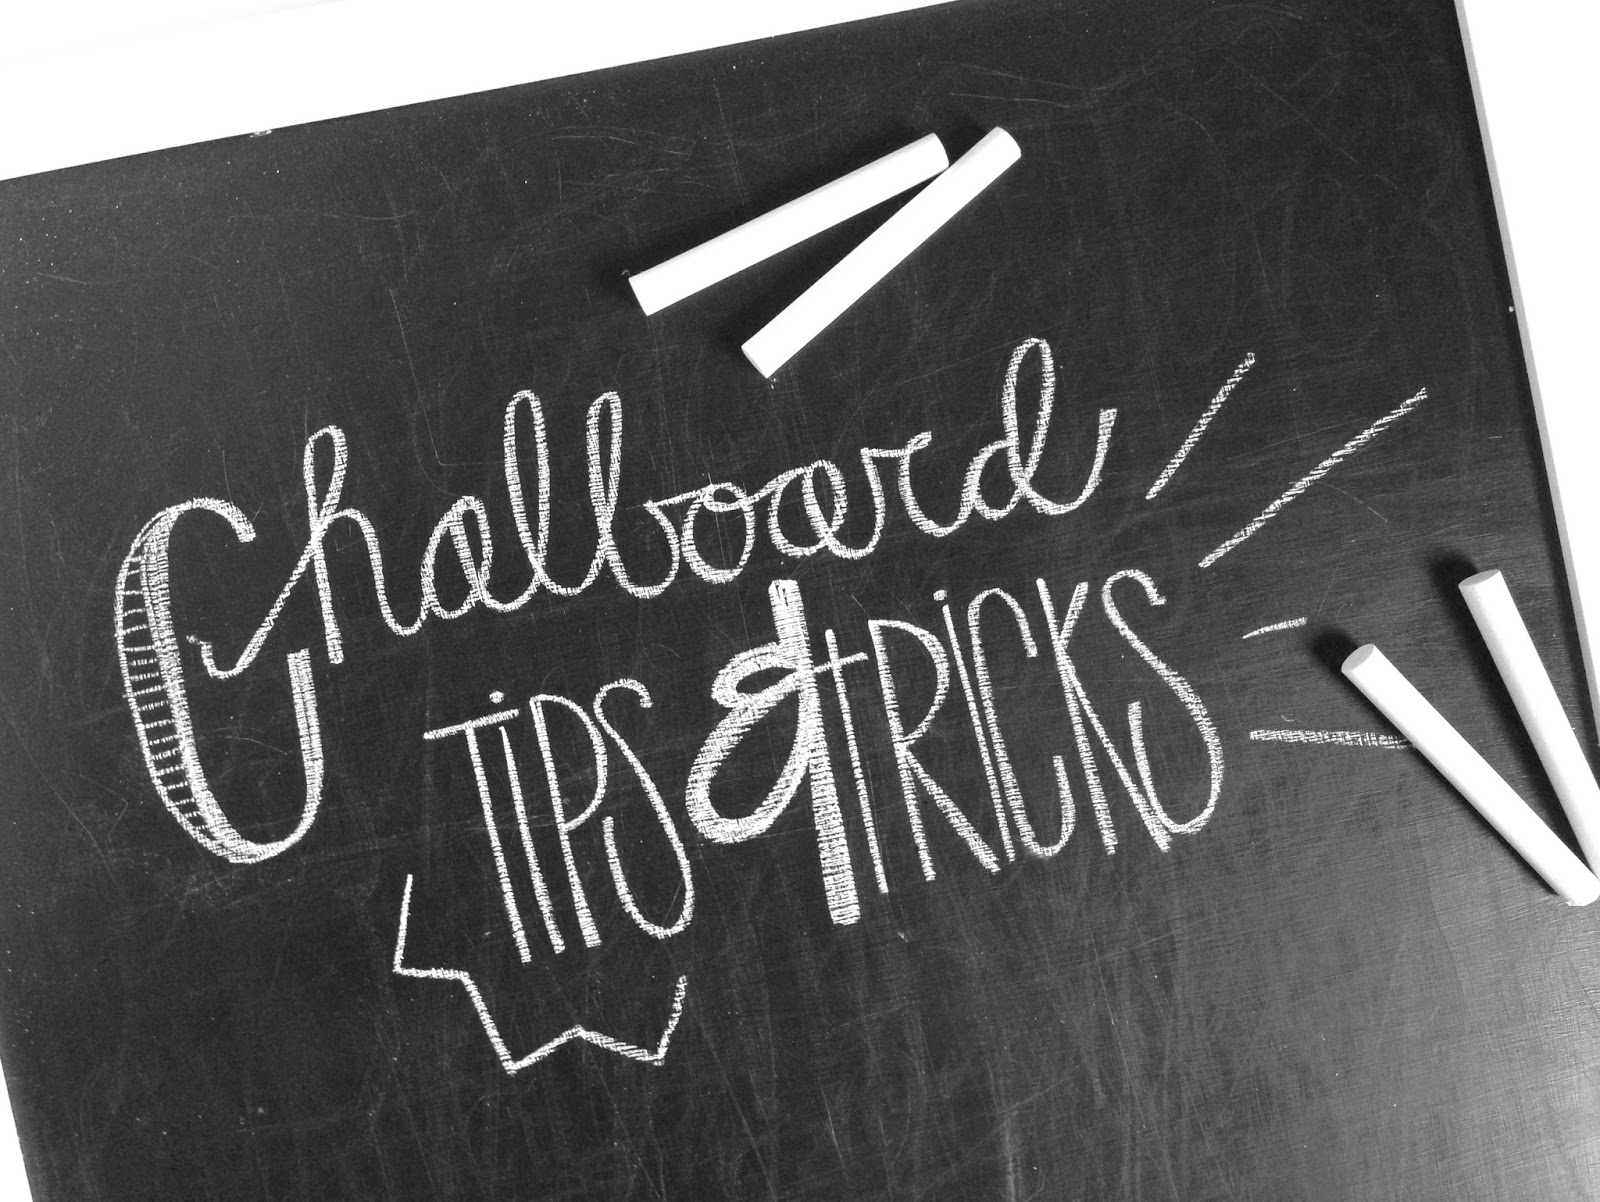 Chalboard
TiPS & tRiCKS